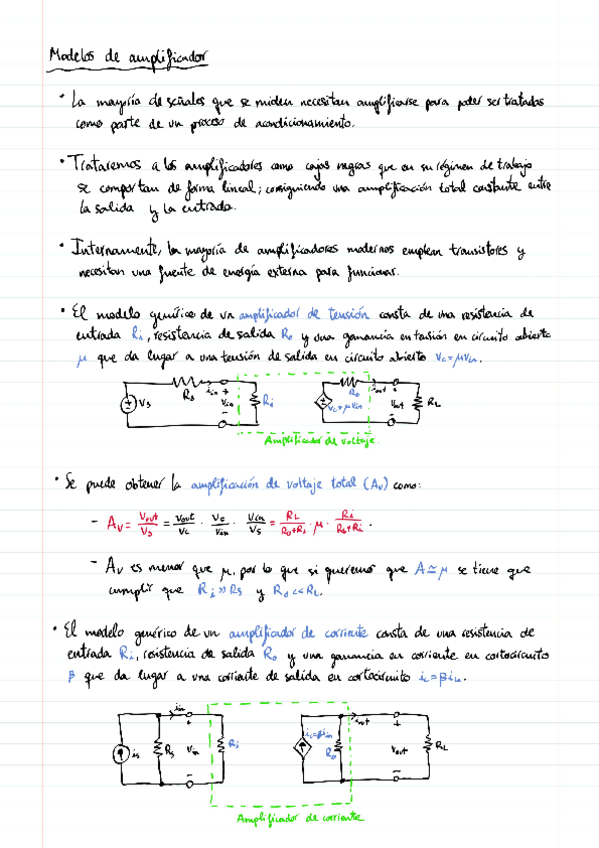 Modelos de amplificador
· La mayoría de señales que se miden necesitan amplificarse para poder ser tratadas
como parte de un proceso de acondicionamiento.
· Trataremos a los amplificadores como cajas negras que en su régimen de trabajo
se comportan de forma lineal; consiguiendo una amplificación total constante entre
la salida y la entrada.
· Internamente, la mayoría de amplificadores modernos emplean transistores y
necesitan una fuente de energía externa para funcionar.
· El modelo genérico de un amplificador de tensión consta de una resistencia de
entrada Ri, resistencia de salida Ro y una ganancia en tensión en circuito abierto
μ que da lugar a una tensión de salida en circuito abierto vc=μvin.
Vs Rs iin + Vin − Ri vc=μvin Ro iout + Vout − RL
Amplificador de voltaje
· Se puede obtener la amplificación de voltaje total (Av) como:
– Av = Vout/Vs = Vout/Vc · Vc/Vin · Vin/Vs = RL/(Ro+RL) · μ · Ri/(Rs+Ri).
– Av es menor que μ, por lo que si queremos que A≃μ se tiene que
cumplir que Ri>>Rs y Ro<<RL.
· El modelo genérico de un amplificador de corriente consta de una resistencia de
entrada Ri, resistencia de salida Ro y una ganancia en corriente en cortocircuito
β que da lugar a una corriente de salida en cortocircuito ic=βiin.
is Rs iin + Vin − Ri ic=βiin Ro iout + Vout − RL
Amplificador de corriente